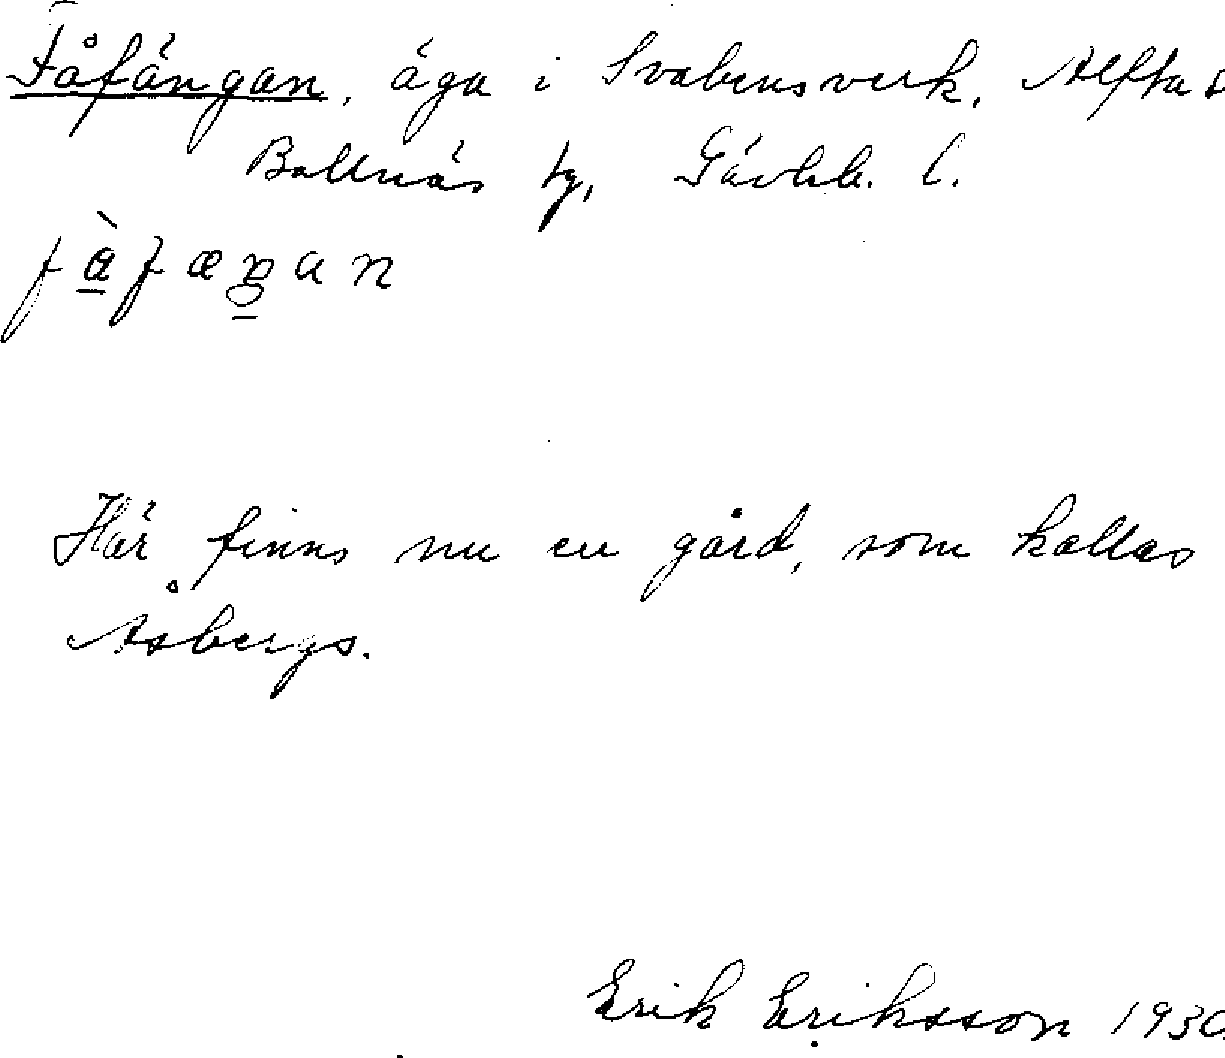 Fåfängan, äga i Svabensverk, Alfta s
Bollnäs tg, Gävleb. l.
fàfæŋan
Här finns nu en gård, som kallas
Åsbergs.
Erik Eriksson 1930